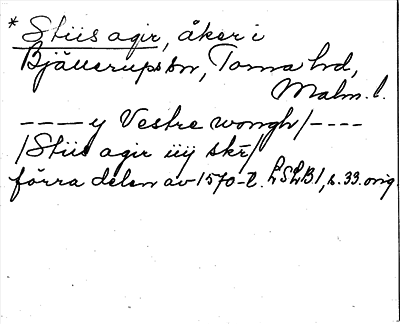 * Stiis agir, åker i
Bjällerups sn, Torna hd,
Malm. l.
---- y Vestre wongh/----
/Stiis agir iiij skr/
förra delen av 1570-t. LSLB1, s. 33. orig.